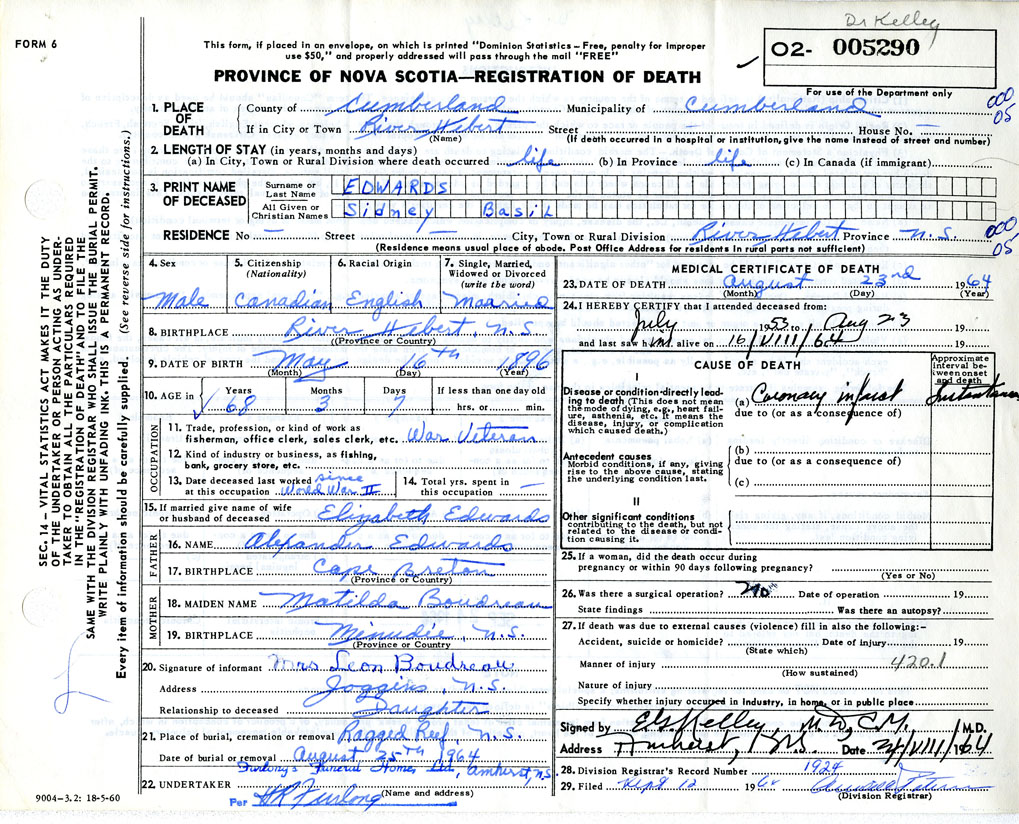 Dr Kelley
FORM 6
This form, if placed in an envelope, on which is printed "Dominion Statistics – Free, penalty for improper
use $50," and properly addressed will pass through the mail "FREE"
O2- 005290
PROVINCE OF NOVA SCOTIA—REGISTRATION OF DEATH
For use of the Department only
000
05
SEC. 14 – VITAL STATISTICS ACT MAKES IT THE DUTY
OF THE UNDERTAKER OR PERSON ACTING AS UNDER-
TAKER TO OBTAIN ALL THE PARTICULARS REQUIRED
IN THE "REGISTRATION OF DEATH" AND TO FILE THE
SAME WITH THE DIVISION REGISTRAR WHO SHALL ISSUE THE BURIAL PERMIT.
WRITE PLAINLY WITH UNFADING INK. THIS IS A PERMANENT RECORD.
Every item of information should be carefully supplied. (See reverse side for instructions.)
1. PLACE OF DEATH
County of Cumberland Municipality of Cumberland
If in City or Town River Hebert Street — House No. —
(Name) (If death occurred in a hospital or institution, give the name instead of street and number)
2. LENGTH OF STAY (in years, months and days)
(a) In City, Town or Rural Division where death occurred life (b) In Province life (c) In Canada (if immigrant)
3. PRINT NAME OF DECEASED
Surname or Last Name EDWARDS
All Given or Christian Names Sidney Basil
RESIDENCE No — Street — City, Town or Rural Division River Hebert Province N.S.
000
05
(Residence means usual place of abode. Post Office Address for residents in rural parts not sufficient)
4. Sex
Male
5. Citizenship
(Nationality)
Canadian
6. Racial Origin
English
7. Single, Married,
Widowed or Divorced
(write the word)
Married
8. BIRTHPLACE River Hebert N.S.
(Province or Country)
9. DATE OF BIRTH May 16th 1896
(Month) (Day) (Year)
10. AGE in Years 68 Months 3 Days 7 If less than one day old
hrs. or min.
OCCUPATION
11. Trade, profession, or kind of work as
fisherman, office clerk, sales clerk, etc. War Veteran
12. Kind of industry or business, as fishing,
bank, grocery store, etc.
13. Date deceased last worked since
at this occupation World War II
14. Total yrs. spent in
this occupation —
15. If married give name of wife
or husband of deceased Elizabeth Edwards
FATHER
16. NAME Alexander Edwards
17. BIRTHPLACE Cape Breton
(Province or Country)
MOTHER
18. MAIDEN NAME Matilda Boudreau
19. BIRTHPLACE Minudie, N.S.
(Province or Country
20. Signature of informant Mrs Leon Boudreau
Address Joggins, N.S.
Relationship to deceased Daughter
21. Place of burial, cremation or removal Ragged Reef, N.S.
Date of burial or removal August 25th 1964
Furlong's Funeral Homes Ltd, Amherst, N.S.
22. UNDERTAKER (Name and address)
Per HR Furlong
9004—3.2: 18-5-60
MEDICAL CERTIFICATE OF DEATH
23. DATE OF DEATH August 23nd 1964
(Month) (Day) (Year)
24. I HEREBY CERTIFY that I attended deceased from:
July 1953 to Aug 23 19
and last saw him alive on 16/VIII/64 19
CAUSE OF DEATH
Approximate
interval be-
tween onset
and death
I
Disease or condition directly lead-
ing to death (This does not mean
the mode of dying, e.g., heart fail-
ure, asthenia, etc. It means the
disease, injury, or complication
which caused death.)
(a) Coronary infarct
due to (or as a consequence of)
Antecedent causes
Morbid conditions, if any, giving
rise to the above cause, stating
the underlying condition last.
(b)
due to (or as a consequence of)
(c)
II
Other significant conditions
contributing to the death, but not
related to the disease or condi-
tion causing it.
25. If a woman, did the death occur during
pregnancy or within 90 days following pregnancy?
(Yes or No)
26. Was there a surgical operation? No Date of operation 19
State findings Was there an autopsy?
27. If death was due to external causes (violence) fill in also the following:–
Accident, suicide or homicide? Date of injury 19
(State which)
Manner of injury 420.1
(How sustained)
Nature of injury
Specify whether injury occured in Industry, in home, or in public place
Signed by Kelley M.D., C.M. M.D.
Address Amherst, N.S. Date 24/VIII/1964
28. Division Registrar's Record Number 1924
29. Filed Sept 12 1964
(Division Registrar)